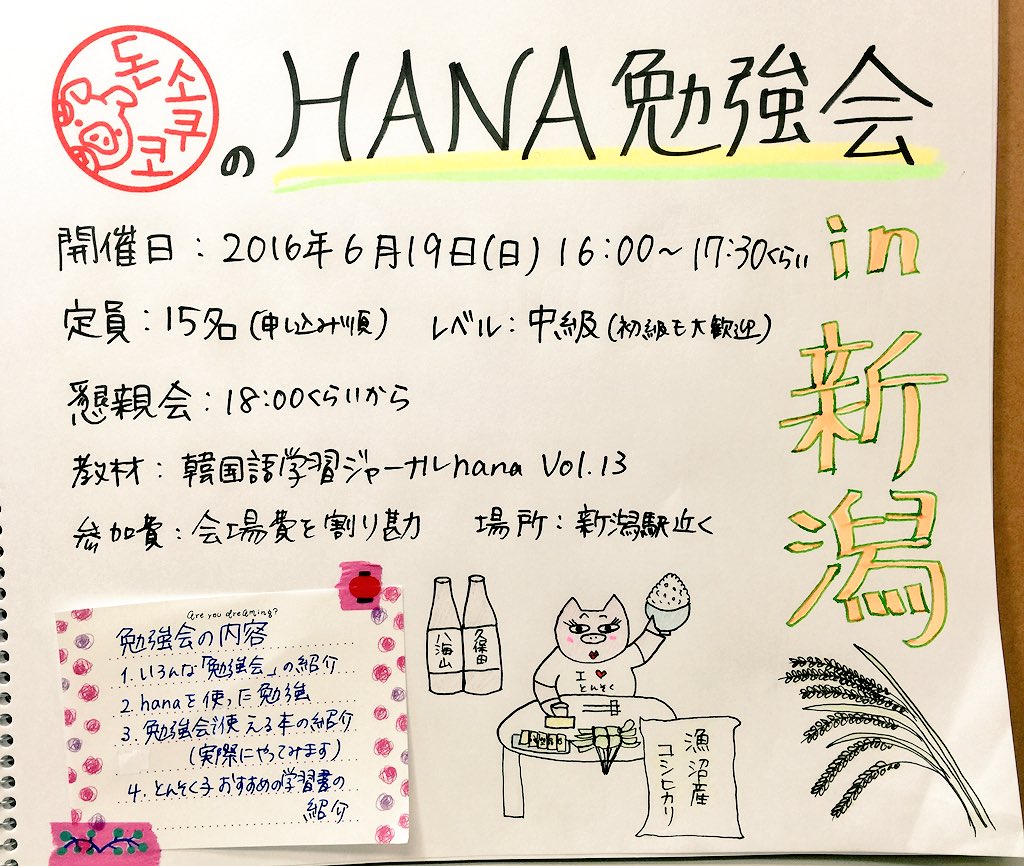 돈소쿠코
の HANA 勉強会
in 新潟
開催日：2016年6月19日(日) 16:00～17:30くらい
定員：15名 (申し込み順) レベル：中級 (初級も大歓迎)
懇親会：18:00くらいから
教材：韓国語学習ジャーナルhana Vol.13
参加費：会場費を割り勘 場所：新潟駅近く
Are you dreaming?
勉強会の内容
1. いろんな「勉強会」の紹介
2. hanaを使った勉強
3. 勉強会で使える本の紹介
(実際にやってみます)
4. とんそく子おすすめの学習書の
紹介
八海山
久保田
I ♥
とんそく
漁沼産
コシヒカリ